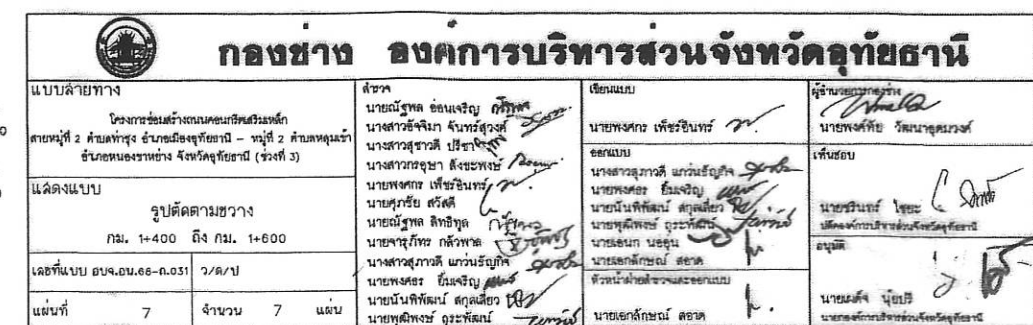 กองช่าง องค์การบริหารส่วนจังหวัดอุทัยธานี
แบบสายทาง
โครงการซ่อมสร้างถนนคอนกรีตเสริมเหล็ก
สายหมู่ที่ 2 ตำบลท่าซุง อำเภอเมืองอุทัยธานี - หมู่ที่ 2 ตำบลหลุมเข้า
อำเภอหนองขาหย่าง จังหวัดอุทัยธานี (ช่วงที่ 3)
แสดงแบบ
รูปตัดตามขวาง
กม. 1+400 ถึง กม. 1+600
เลขที่แบบ อบจ.อน.66-ถ.031 ว/ด/ป
แผ่นที่ 7 จำนวน 7 แผ่น
สำรวจ
นายณัฐพล อ่อนเจริญ
นางสาวอัจจิมา จันทร์สุวงศ์
นางสาวสุชาวดี ปรีชา
นางสาวกรอุษา สังขะพงษ์
นายพงศกร เพ็ชร์อินทร์
นายศุภชัย สวัสดี
นายณัฐพล สิทธิทูล
นายจารุภัทร กลัวพาล
นางสาวสุภาวดี แกว่นธัญกิจ
นายพงศธร ยิ้มเจริญ
นายนันพิพัฒน์ สกุลเลี่ยว
นายพุฒิพงษ์ ถุระพัฒน์
เขียนแบบ
นายพงศกร เพ็ชร์อินทร์
ออกแบบ
นางสาวสุภาวดี แกว่นธัญกิจ
นายพงศธร ยิ้มเจริญ
นายนันพิพัฒน์ สกุลเลี่ยว
นายพุฒิพงษ์ ถุระพัฒน์
นายเอนก
นายเอกลักษณ์ สอาด
หัวหน้าฝ่ายสำรวจและออกแบบ
นายเอกลักษณ์ สอาด
ผู้อำนวยการกองช่าง
นายพงศ์ทัย วัฒนาอุดมวงศ์
เห็นชอบ
นายชรินทร์ ไชยะ
ปลัดองค์การบริหารส่วนจังหวัดอุทัยธานี
อนุมัติ
นายเผด็จ นุ้ยปรี
นายกองค์การบริหารส่วนจังหวัดอุทัยธานี